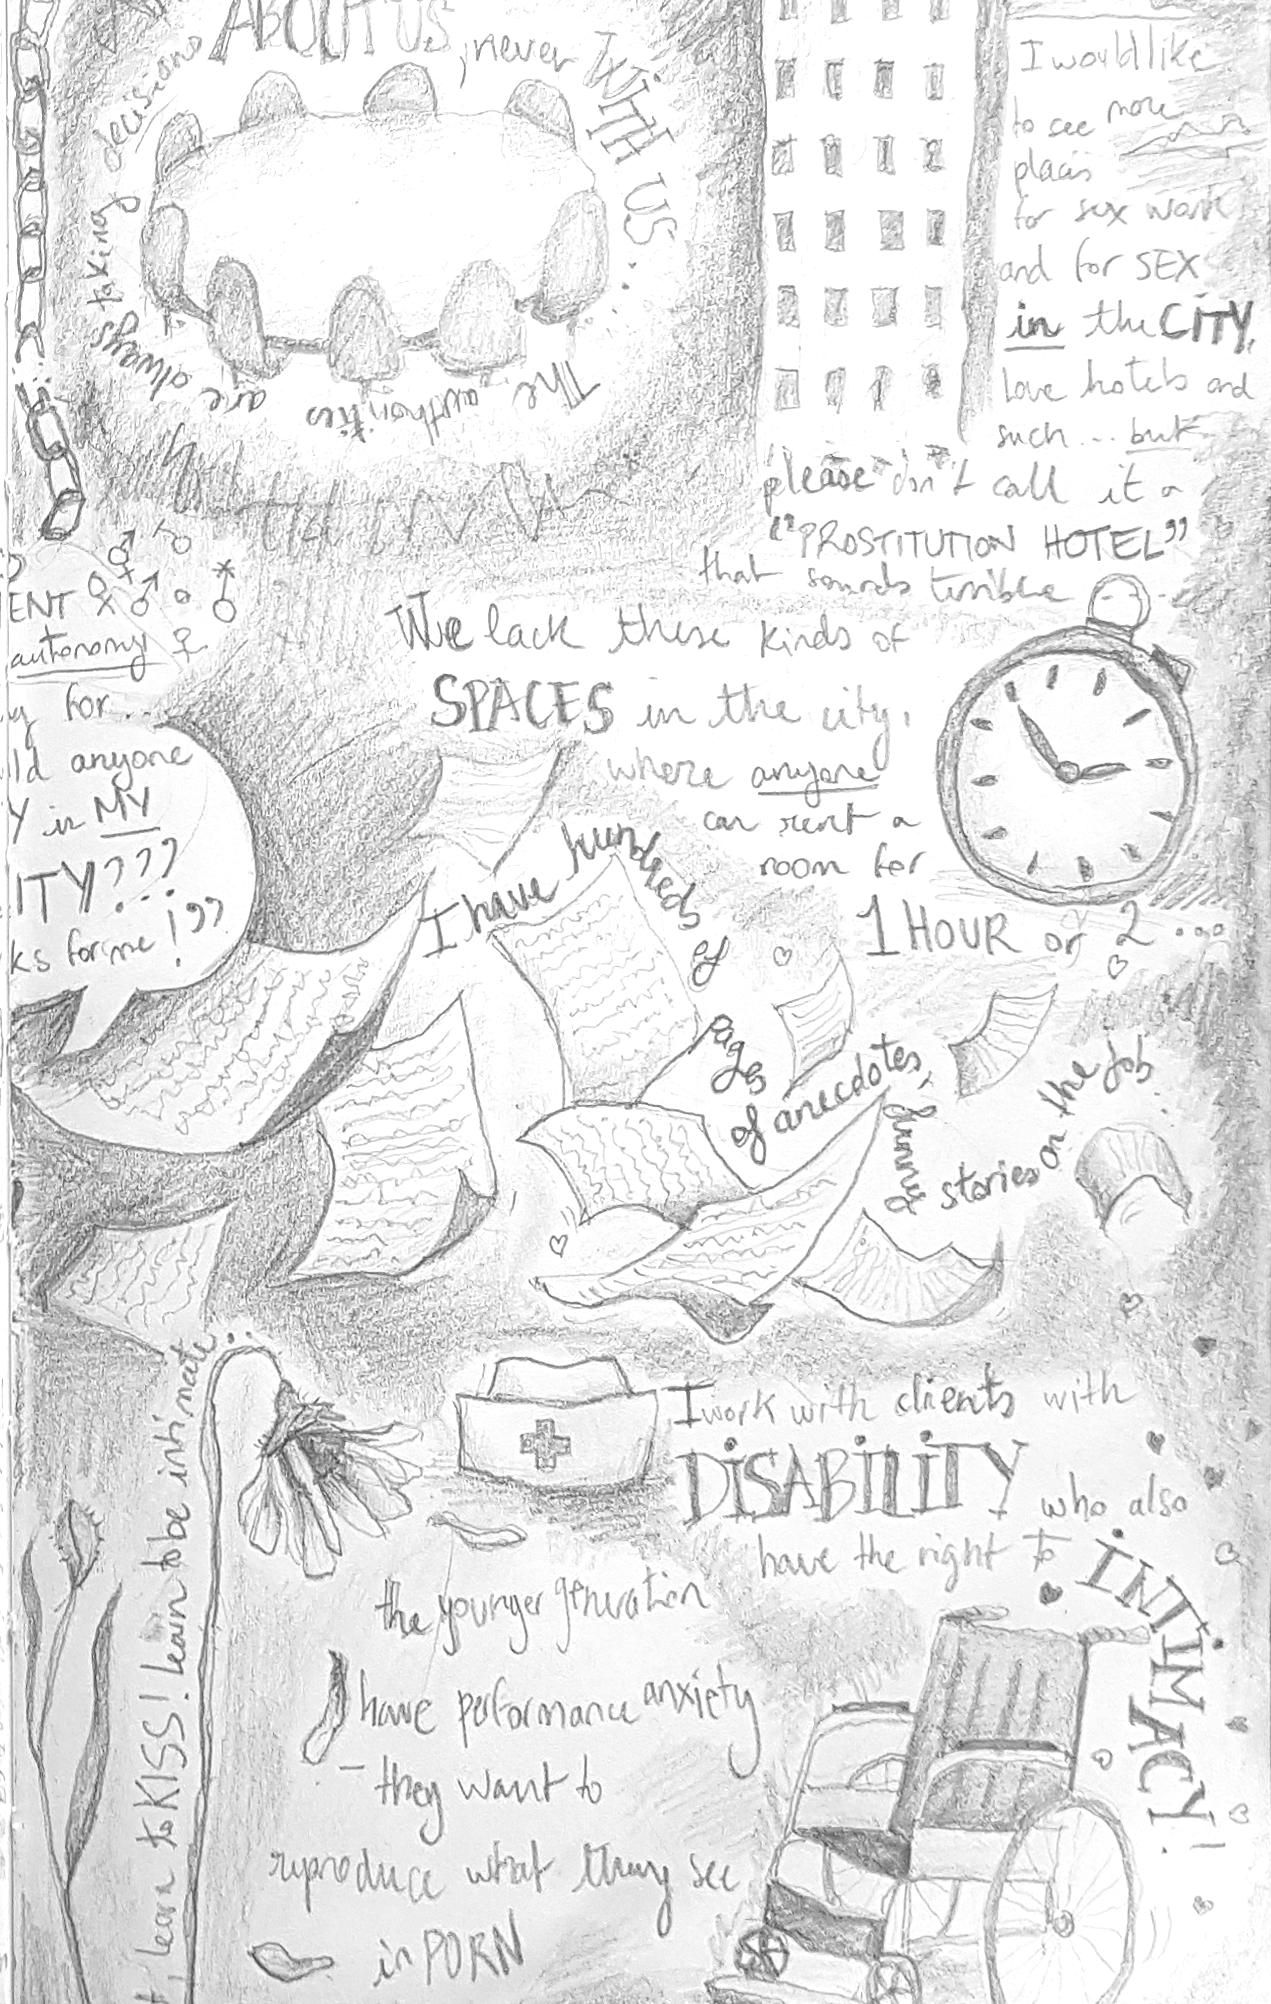 The authorities are always taking decisions ABOUT US, never WITH US...
I would like
to see more
places
for sex work
and for SEX
in the CITY,
love hotels and
such... but
please don't call it a
"PROSTITUTION HOTEL"
that sounds terrible
We lack these kinds of
SPACES in the city,
where anyone
can rent a
room for
1 HOUR or 2...
ENT
autonomy
for...
anyone
in MY
ITY???
for me!??
I have hundreds of pages of anecdotes, funny stories on the job
I work with clients with
DISABILITY who also
have the right to INTIMACY!
learn to KISS! learn to be intimate...
the younger generation
have performance anxiety
- they want to
reproduce what they see
in PORN